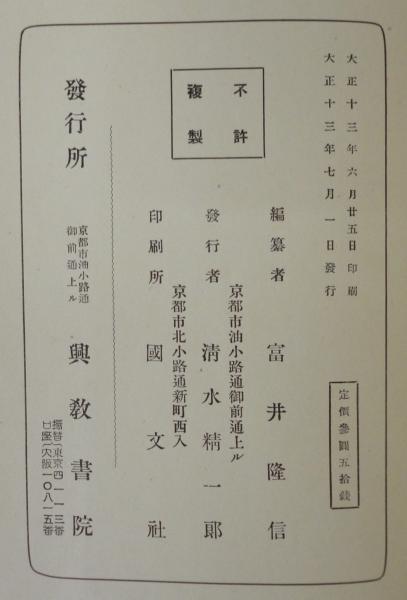 大正十三年六月廿五日印刷
大正十三年七月一日發行
定價參圓五拾錢
不許
複製
編纂者 富井隆信
京都市油小路通御前通上ル
發行者 淸水精一郞
京都市北小路通新町西入
印刷所 國文社
發行所 京都市油小路通
御前通上ル 興敎書院
振替(東京四一一三番
口座(大阪一〇八一五番